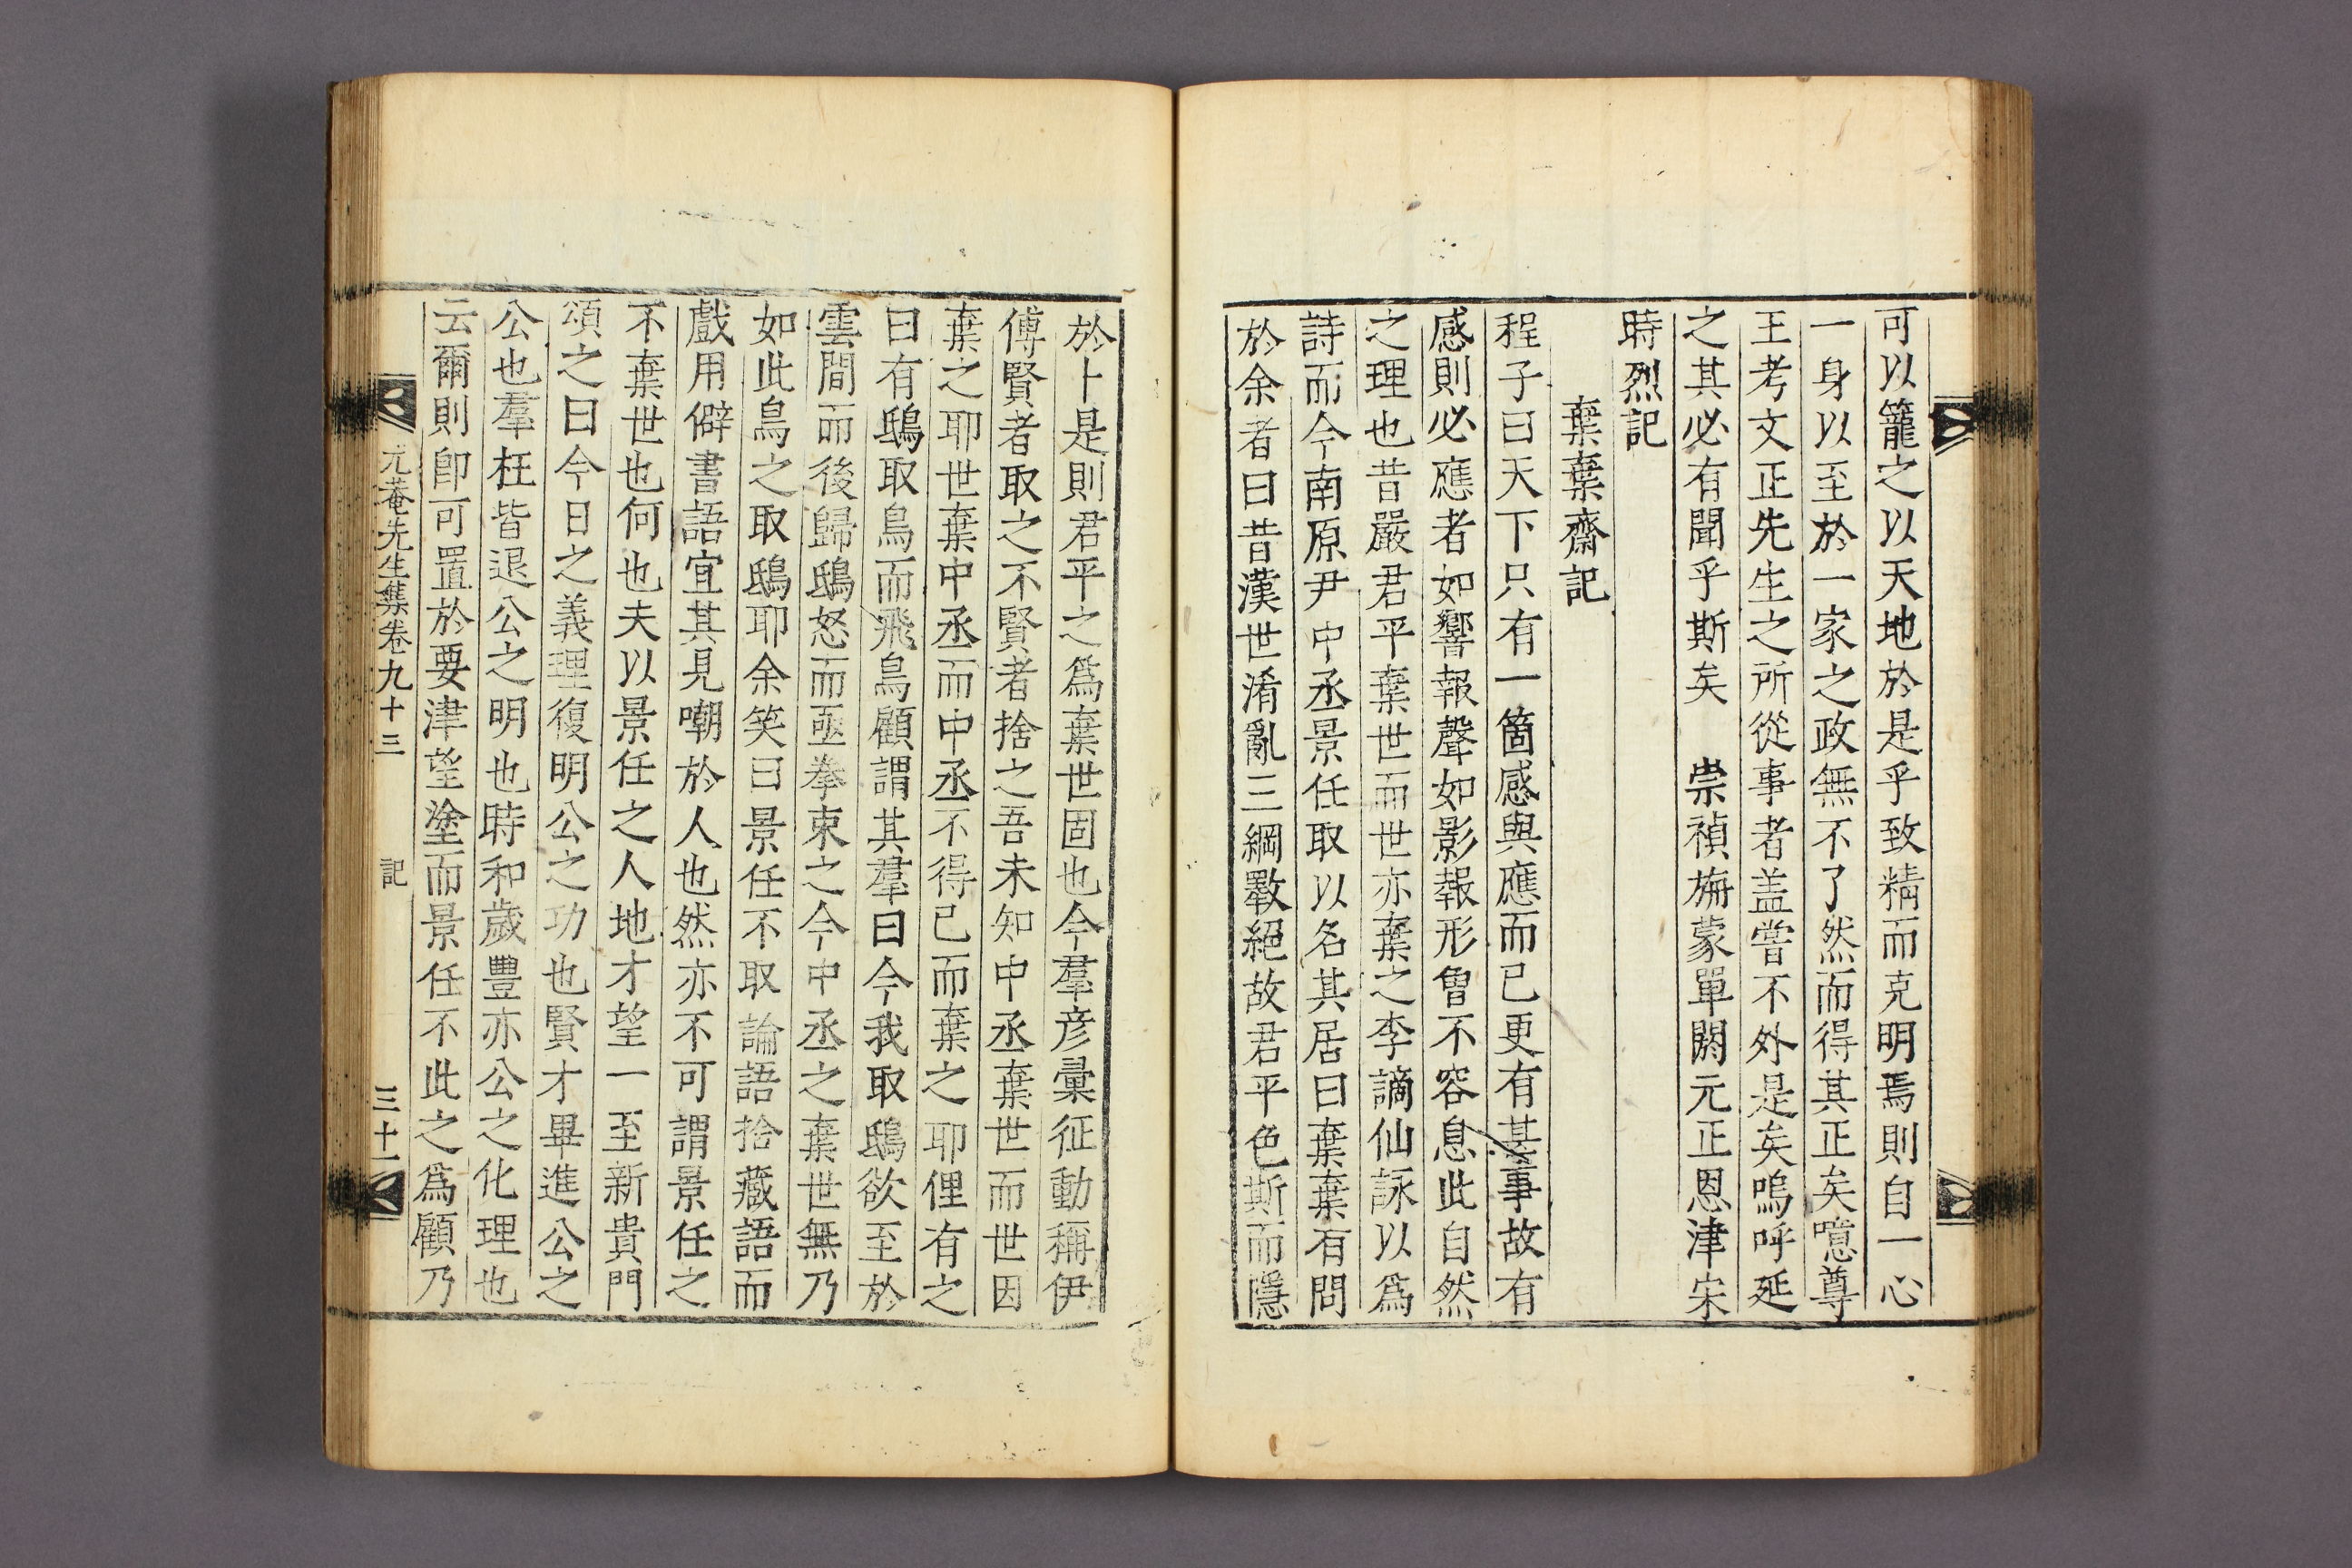 可以籠之以天地於是乎致精而克明焉則自一心
一身以至於一家之政無不了然而得其正矣噫尊
王考文正先生之所從事者盖嘗不外是矣嗚呼延
之其必有聞乎斯矣　崇禎旃蒙單閼元正恩津宋
時烈記
棄棄齋記
程子曰天下只有一箇感與應而已更有甚事故有
感則必應者如響報聲如影報形曾不容息此自然
之理也昔嚴君平棄世而世亦棄之李謫仙詠以爲
詩而今南原尹中丞景任取以名其居曰棄棄有問
於余者曰昔漢世淆亂三綱斁絕故君平色斯而隱
於卜是則君平之爲棄世固也今羣彦彙征動稱伊
傅賢者取之不賢者捨之吾未知中丞棄世而世因
棄之耶世棄中丞而中丞不得已而棄之耶俚有之
曰有鴟取鳥而飛鳥顧謂其羣曰今我取鴟欲至於
雲間而後歸鴟怒而亟拳束之今中丞之棄世無乃
如此鳥之取鴟耶余笑曰景任不取論語捨藏語而
戲用僻書語宜其見嘲於人也然亦不可謂景任之
不棄世也何也夫以景任之人地才望一至新貴門
頌之曰今日之義理復明公之功也賢才畢進公之
公也羣枉皆退公之明也時和歲豐亦公之化理也
云爾則卽可置於要津望塗而景任不此之爲顧乃
尤菴先生集卷九十三　記　三十一